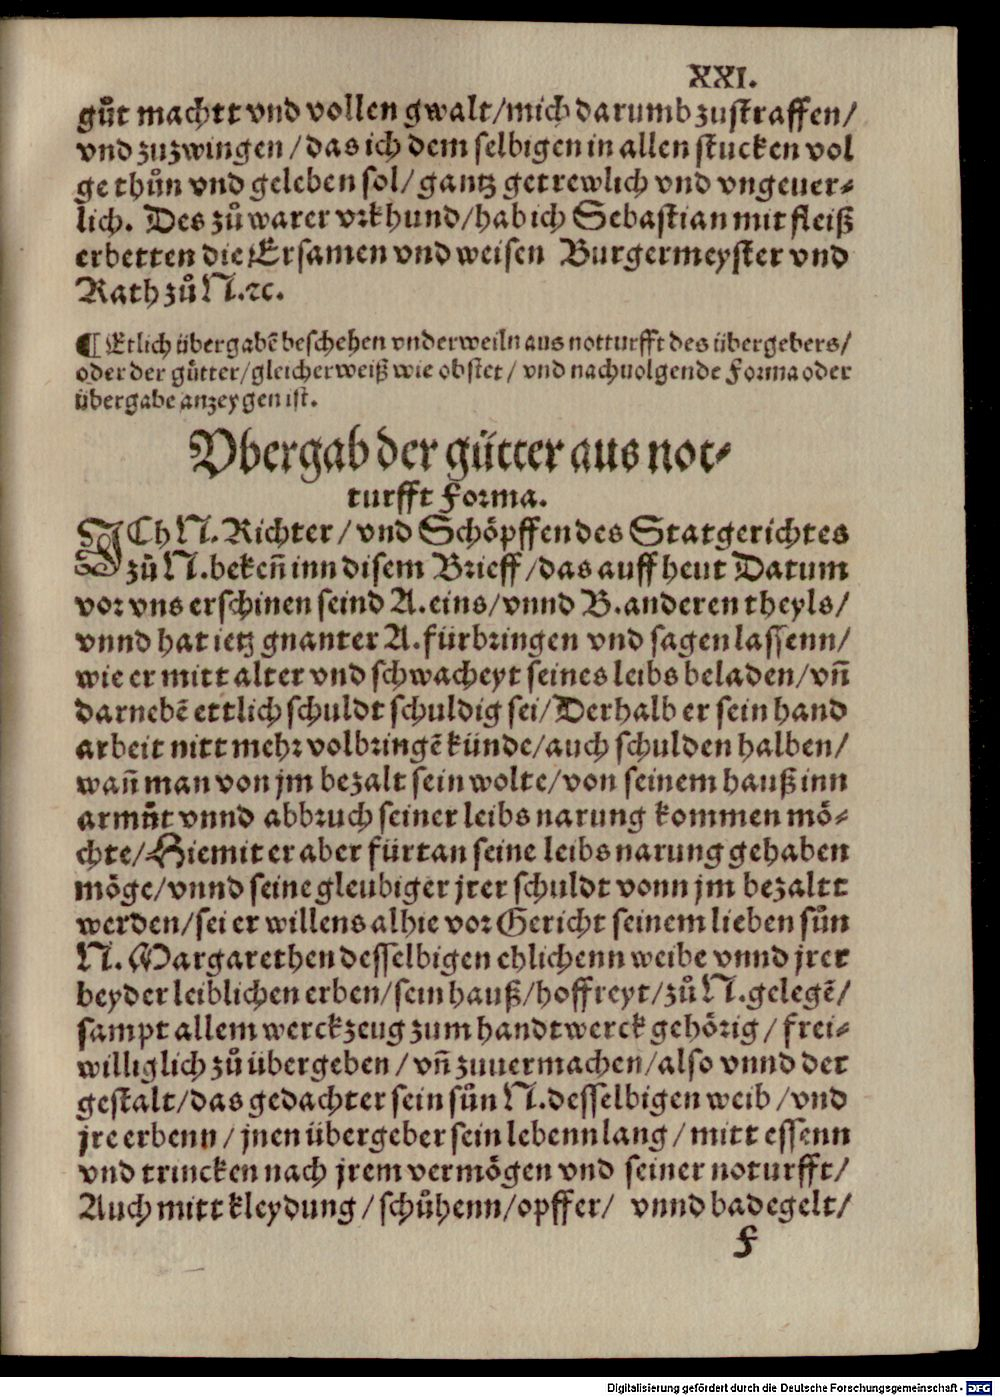 XXI.
gůt machtt vnd vollen gwalt/mich darumb zustraffen/
vnd zuzwingen/das ich dem selbigen in allen stucken vol
ge thůn vnd geleben sol/gantz getrewlich vnd vngeuer⸗
lich. Des zů warer vrkhund/hab ich Sebastian mit fleiß
erbetten die Ersamen vnd weisen Burgermeyster vnd
Rath zů N.ꝛc.
¶ Etlich übergabē beschehen vnderweiln aus notturfft des übergebers/
oder der gůtter/gleicherweiß wie obstet/ vnd nachuolgende Forma oder
übergabe anzeygen ist.
Vbergab der gůtter aus not⸗
turfft Forma.
ICh N. Richter/vnd Schöpffen des Statgerichtes
zů N.bekeñ inn disem Brieff/das auff heut Datum
vor vns erschinen seind A.eins/vnnd B.anderen theyls/
vnnd hat ietz gnanter A.fürbringen vnd sagen lassenn/
wie er mitt alter vnd schwacheyt seines leibs beladen/vñ
darnebē ettlich schuldt schuldig sei/Derhalb er sein hand
arbeit nitt mehr volbringē künde/auch schulden halben/
wañ man von jm bezalt sein wolte/von seinem hauß inn
armůt vnnd abbruch seiner leibs narung kommen mö⸗
chte/Hiemit er aber fürtan seine leibs narung gehaben
möge/vnnd seine gleubiger jrer schuldt vonn jm bezaltt
werden/sei er willens alhie vor Gericht seinem lieben sůn
N. Margarethen desselbigen ehlichenn weibe vnnd jrer
beyder leiblichen erben/sein hauß/hoffreyt/zů N.gelegē/
sampt allem werckzeug zum handtwerck gehörig/frei⸗
williglich zů übergeben/vñ zuuermachen/also vnnd der
gestalt/das gedachter sein sůn N.desselbigen weib/vnd
jre erbenn/jnen übergeber sein lebenn lang/mitt essenn
vnd trincken nach jrem vermögen vnd seiner noturfft/
Auch mitt kleydung/schůhenn/opffer/ vnnd badegelt/
F
Digitalisierung gefördert durch die Deutsche Forschungsgemeinschaft - DFG